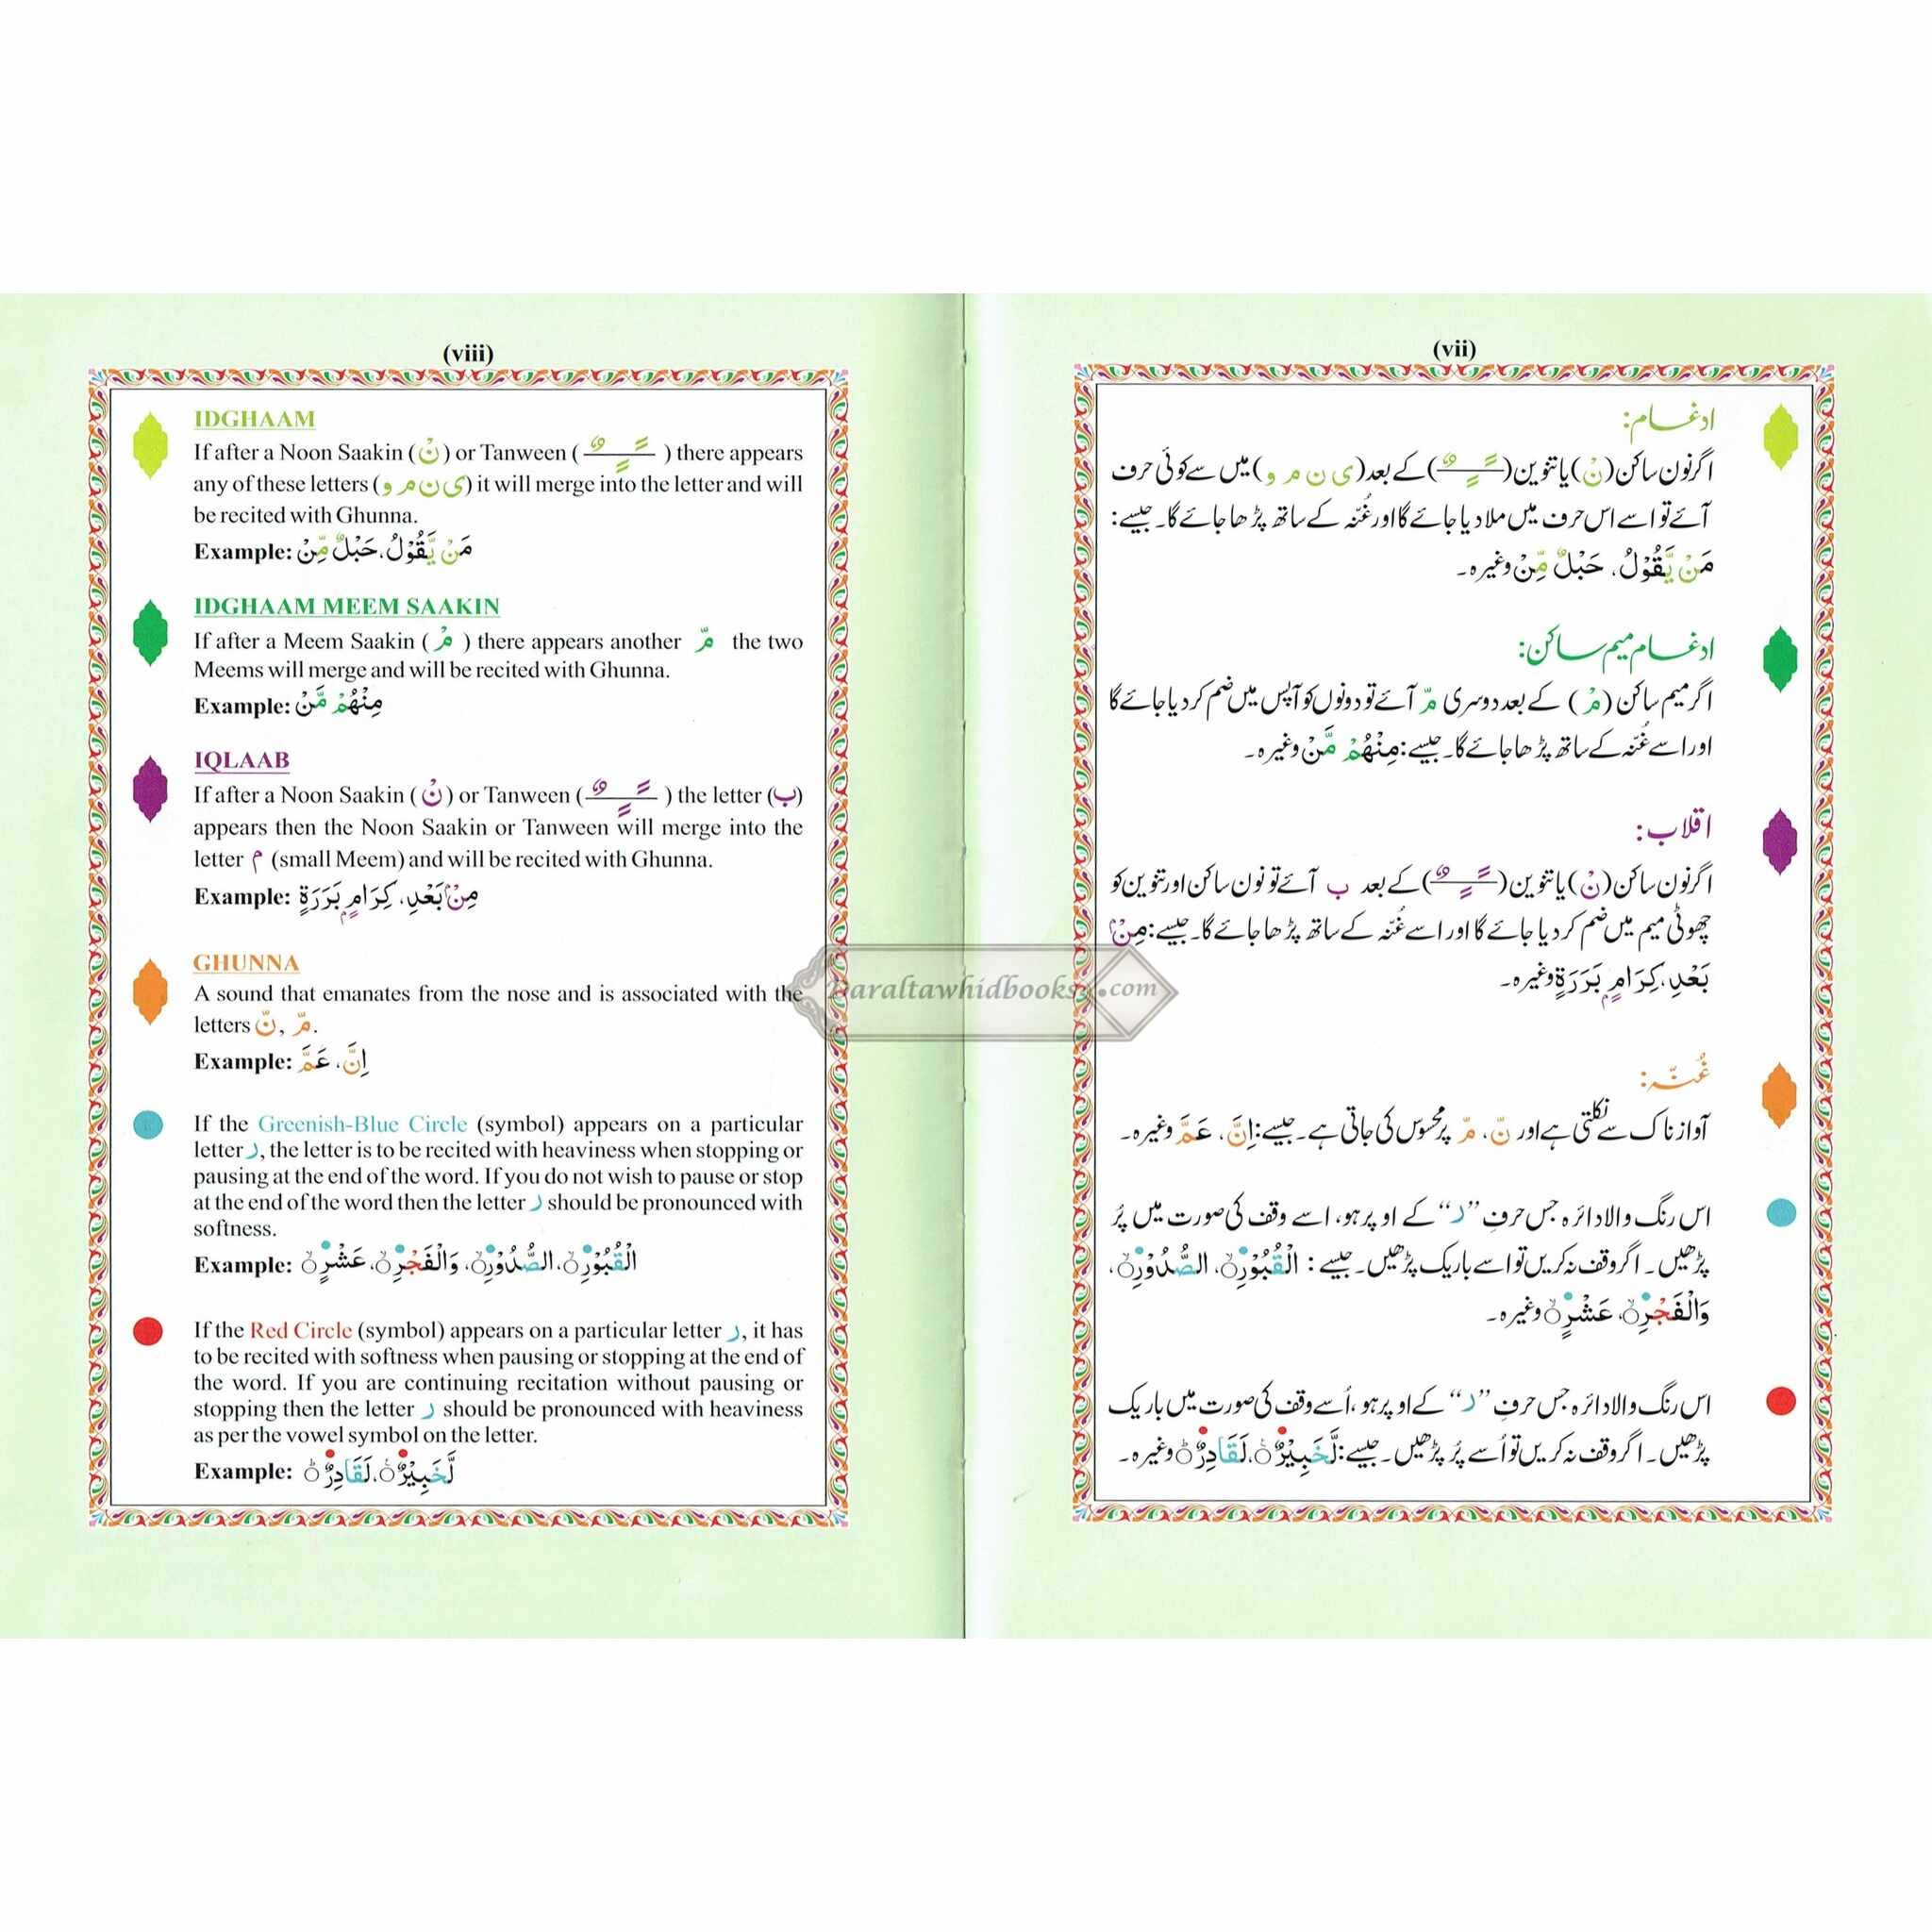 (viii)
IDGHAAM
If after a Noon Saakin (نْ) or Tanween ( ـًـٍـٌ ) there appears
any of these letters (ی ن م و) it will merge into the letter and will
be recited with Ghunna.
Example: مَنْ يَّقُوْلُ، حَبْلٌ مِّنْ
IDGHAAM MEEM SAAKIN
If after a Meem Saakin ( مْ ) there appears another مّ the two
Meems will merge and will be recited with Ghunna.
Example: مِنْهُمْ مَّنْ
IQLAAB
If after a Noon Saakin ( نْ ) or Tanween ( ـًـٍـٌ ) the letter (ب)
appears then the Noon Saakin or Tanween will merge into the
letter م (small Meem) and will be recited with Ghunna.
Example: مِنْۢ بَعْدِ، كِرَامٍۭ بَرَرَةٍ
GHUNNA
A sound that emanates from the nose and is associated with the
letters نّ, مّ.
Example: اِنَّ، عَمَّ
If the Greenish-Blue Circle (symbol) appears on a particular
letter ر, the letter is to be recited with heaviness when stopping or
pausing at the end of the word. If you do not wish to pause or stop
at the end of the word then the letter ر should be pronounced with
softness.
Example: الْقُبُوْرِ، الصُّدُوْرِ، وَالْفَجْرِ، عَشْرٍ
If the Red Circle (symbol) appears on a particular letter ر, it has
to be recited with softness when pausing or stopping at the end of
the word. If you are continuing recitation without pausing or
stopping then the letter ر should be pronounced with heaviness
as per the vowel symbol on the letter.
Example: لَّخَبِيْرٌ، لَقَادِرٌ
(vii)
ادغام:
اگر نون ساکن (نْ) یا تنوین (ـًـٍـٌ) کے بعد (ی ن م و) میں سے کوئی حرف
آئے تو اسے اس حرف میں ملا دیا جائے گا اور غُنّہ کے ساتھ پڑھا جائے گا۔ جیسے:
مَنْ يَّقُوْلُ، حَبْلٌ مِّنْ وغیرہ۔
ادغام میم ساکن:
اگر میم ساکن (مْ) کے بعد دوسری مّ آئے تو دونوں کو آپس میں ضم کر دیا جائے گا
اور اسے غُنّہ کے ساتھ پڑھا جائے گا۔ جیسے: مِنْهُمْ مَّنْ وغیرہ۔
اقلاب:
اگر نون ساکن (نْ) یا تنوین (ـًـٍـٌ) کے بعد ب آئے تو نون ساکن اور تنوین کو
چھوٹی میم میں ضم کر دیا جائے گا اور اسے غُنّہ کے ساتھ پڑھا جائے گا۔ جیسے: مِنْۢ
بَعْدِ، كِرَامٍۭ بَرَرَةٍ وغیرہ۔
غُنّہ:
آواز ناک سے نکلتی ہے اور نّ، مّ پر محسوس کی جاتی ہے۔ جیسے: اِنَّ، عَمَّ وغیرہ۔
اس رنگ والا دائرہ جس حرفِ ”ر“ کے اوپر ہو، اسے وقف کی صورت میں پُر
پڑھیں۔ اگر وقف نہ کریں تو اسے باریک پڑھیں۔ جیسے: الْقُبُوْرِ، الصُّدُوْرِ،
وَالْفَجْرِ، عَشْرٍ وغیرہ۔
اس رنگ والا دائرہ جس حرفِ ”ر“ کے اوپر ہو، اُسے وقف کی صورت میں باریک
پڑھیں۔ اگر وقف نہ کریں تو اُسے پُر پڑھیں۔ جیسے: لَّخَبِيْرٌ، لَقَادِرٌ وغیرہ۔
Daraltawhidbooks.com